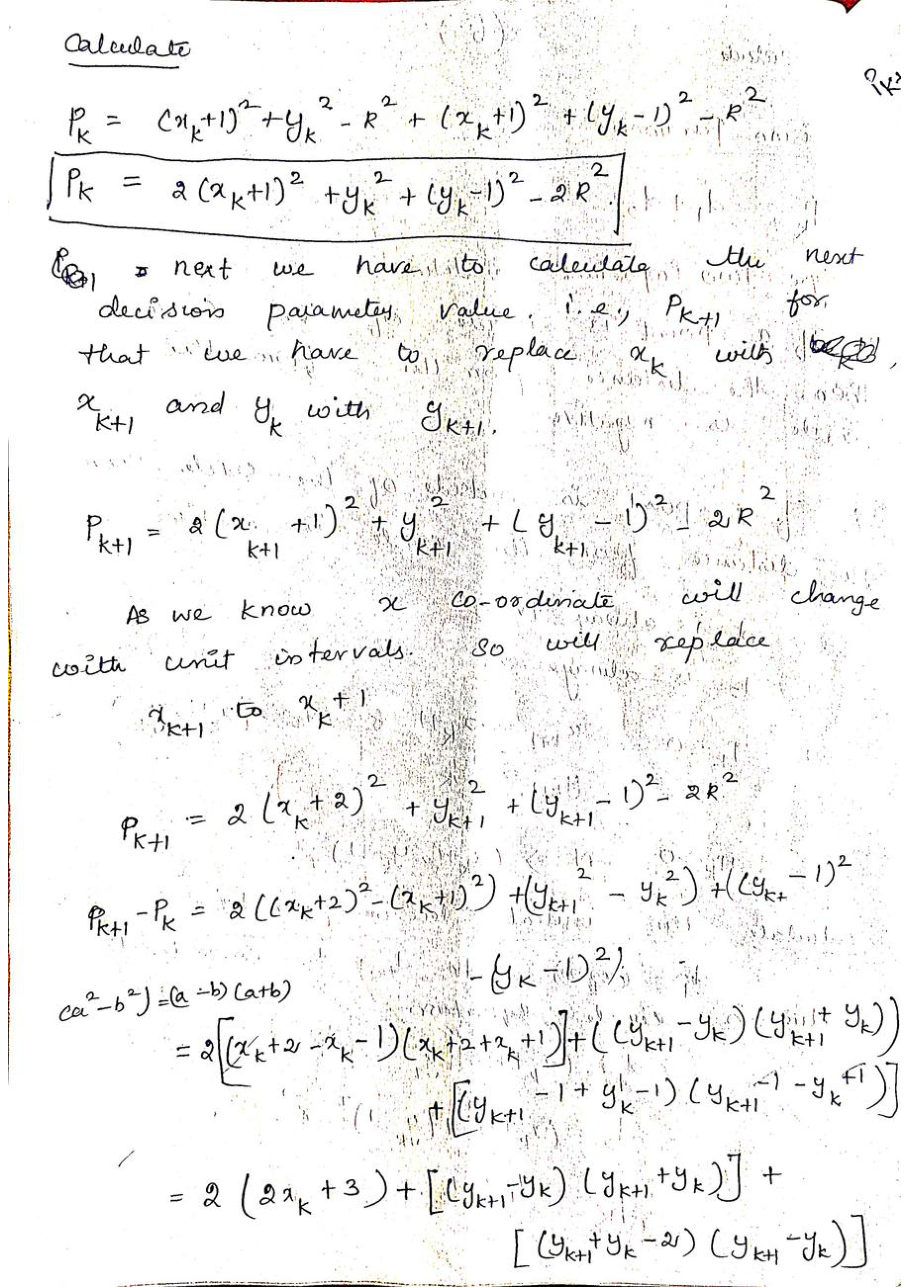 Calculate
P_k = (x_k+1)² + y_k² - R² + (x_k+1)² + (y_k-1)² - R²
P_k = 2(x_k+1)² + y_k² + (y_k-1)² - 2R².
next we have to calculate the next
decision parameter value. i.e., P_{k+1} for
that we have to replace x_k with
x_{k+1} and y_k with y_{k+1}.
P_{k+1} = 2(x_{k+1} +1)² + y_{k+1}² + (y_{k+1} - 1)² - 2R²
As we know x co-ordinate will change
with unit intervals. So will replace
x_{k+1} to x_k + 1
P_{k+1} = 2(x_k + 2)² + y_{k+1}² + (y_{k+1} - 1)² - 2R²
P_{k+1} - P_k = 2((x_k+2)² - (x_k+1)²) + (y_{k+1}² - y_k²) + ((y_{k+} - 1)²
- (y_k - 1)²)
(a²-b²) = (a-b)(a+b)
= 2[(x_k+2 - x_k - 1)(x_k+2+x_k+1)] + ((y_{k+1} - y_k)(y_{k+1} + y_k))
+ [(y_{k+1} - 1 + y_k - 1)(y_{k+1} - 1 - y_k + 1)]
= 2(2x_k + 3) + [(y_{k+1} - y_k)(y_{k+1} + y_k)] +
[(y_{k+1} + y_k - 2)(y_{k+1} - y_k)]